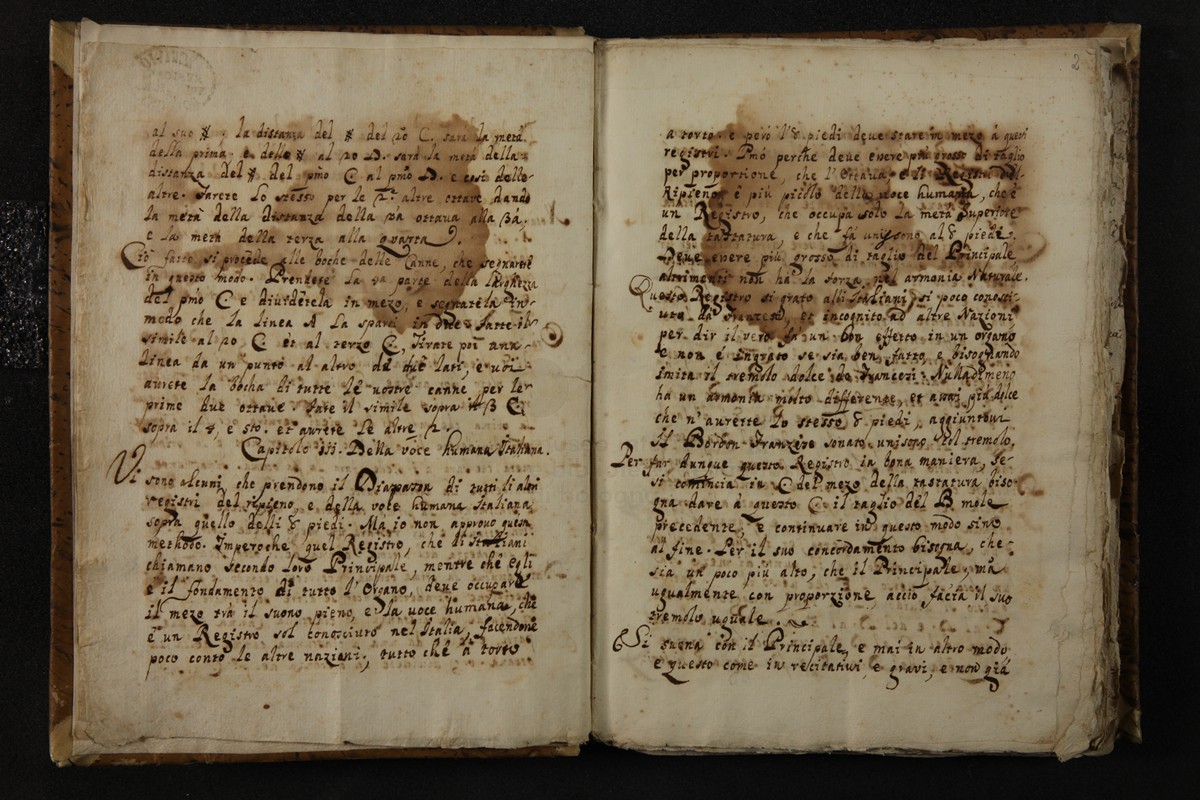 al suo #. la distanza del # del 2o C. sarà la metà
della prima, e dello # al 2o D. sarà la metà della
distanza del # del pmo C al pmo D. e così delle
altre. Farete lo stesso per le 2 altre ottave, dando
la metà della distanza della 2a ottava alla 3a,
e la metà della terza alla quarta.
Ciò fatto si procede alle boche delle Canne, che segnarete
in questo modo. Prendete la parte della larghezza
del pmo C e dividetela in mezo, e segnatela in
modo che la linea A la sparta in due. Fatte il
simile al 2o C et al terzo C, tirate poi una
linea da un punto al altro de due lati, e voi
aurete la bocha di tutte le vostre canne per le
prime due ottave. Fate il simile sopra il 3 C
sopra il 4, e 5to. et aurete le altre 2.
Capitolo iii. Della voce humana Italiana.
Vi sono alcuni che prendono il Diapason di tutti li altri
registri del ripieno, e della vote humana Italiana
sopra quello delli 8 piedi. Ma io non approvo questa
methodo. Imperoche quel Registro, che di Italiani
chiamano secondo loro Principale, mentre che egli
è il fondamento di tutto l'Organo, deve occupare
il mezo trà il suono pieno, e la voce humana, che
è un Registro sol conosciuto nel Italia, facendone
poco conto le altre nazioni, tutto che à torto
2
a torto. e però l'8 piedi deve stare in mezo à questi
registri. Pmó perche deve evere più grosso di taglio
per proportione, che l'Ottava e li Registri del
Ripieno e più picolo della voce humana, che è
un Registro, che occupa solo la metà Superiore
della tastatura, e che fà unissono al 8 piedi.
Deve evere più grosso di taglio del Principale,
altrimenti non ha la forza nel armonia Naturale.
Questo Registro si grato alli Italiani, si poco conosci-
uto da Franzesi, et incognito ad altre Nazioni
per dir il vero fa un bon effetto in un organo
e non è ingrato se sia ben fatto, e bisognando
imita il tremolo dolce de Francesi. Nulladimeno
ha un armonia molto differente, et assai più dolce
che n'aurette lo stesso 8 piedi, aggiuntovi
il Bordon Franzese sonato unisono col tremolo.
Per far dunque questo Registro in bona maniera, se
si comincia in C del mezo della tastatura biso-
gna dare à questo C il taglio del B mole
precedente, e continuare in questo modo sino
al fine. Per il suo concordamento bisogna, che
sia un poco più alto, che il Principale, mà
ugualmente con proporzione, acciò facia il suo
tremolo uguale.
Si suona con il Principale, e mai in altro modo
e questo come in recitativi, e gravi, e non già